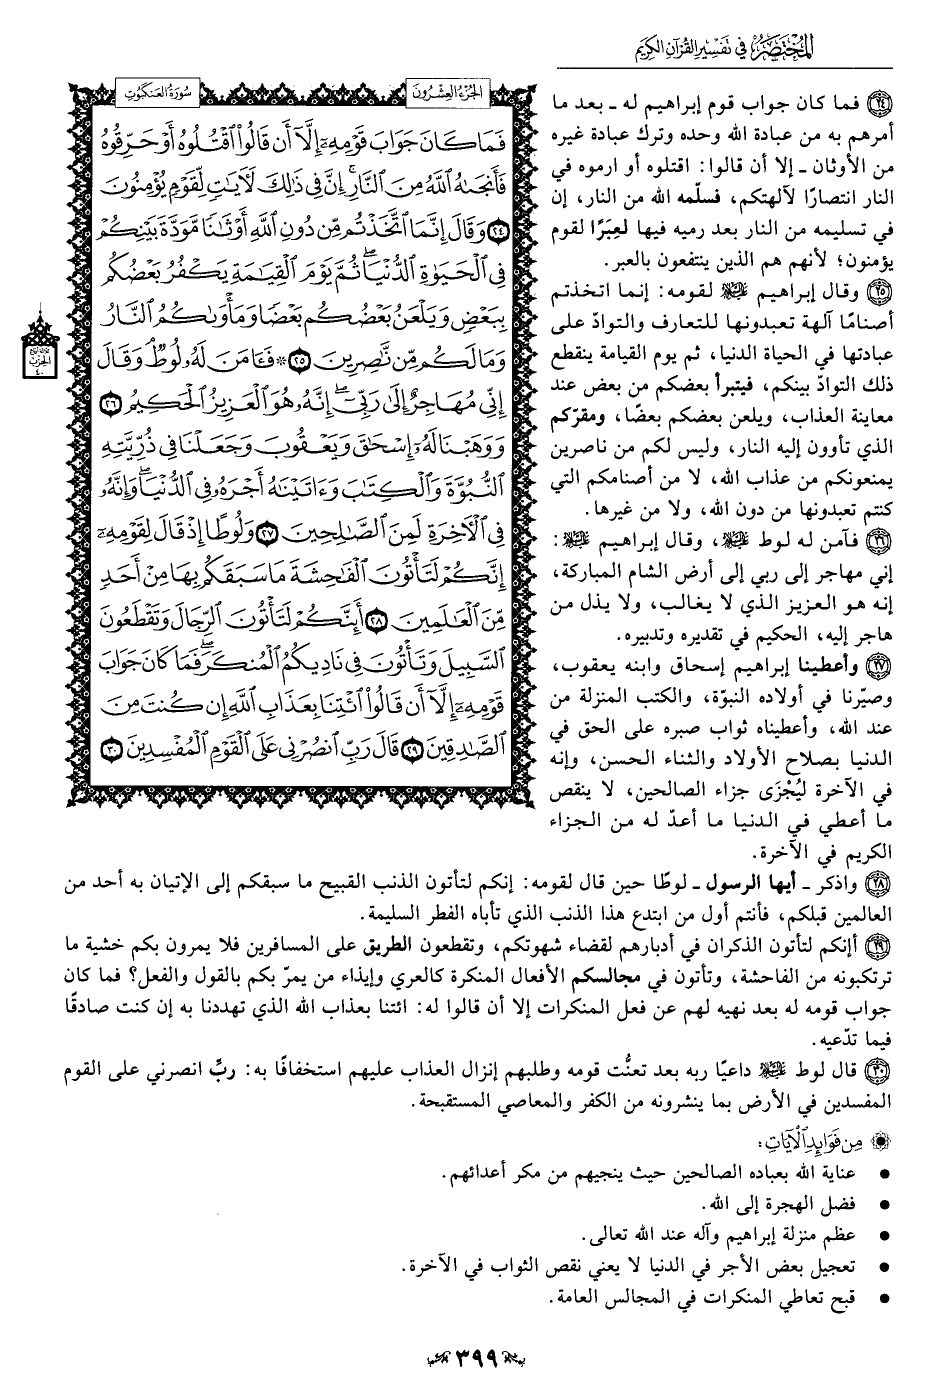 المختصر في تفسير القرآن الكريم
سورة العنكبوت
الجزء العشرون
فَمَا كَانَ جَوَابَ قَوْمِهِۦٓ إِلَّآ أَن قَالُوا۟ ٱقْتُلُوهُ أَوْ حَرِّقُوهُ
فَأَنجَىٰهُ ٱللَّهُ مِنَ ٱلنَّارِ ۚ إِنَّ فِى ذَٰلِكَ لَـَٔايَـٰتٍ لِّقَوْمٍ يُؤْمِنُونَ
٢٤ وَقَالَ إِنَّمَا ٱتَّخَذْتُم مِّن دُونِ ٱللَّهِ أَوْثَـٰنًا مَّوَدَّةَ بَيْنِكُمْ
فِى ٱلْحَيَوٰةِ ٱلدُّنْيَا ۖ ثُمَّ يَوْمَ ٱلْقِيَـٰمَةِ يَكْفُرُ بَعْضُكُم
بِبَعْضٍ وَيَلْعَنُ بَعْضُكُم بَعْضًا وَمَأْوَىٰكُمُ ٱلنَّارُ
وَمَا لَكُم مِّن نَّـٰصِرِينَ ٢٥ ۞ فَـَٔامَنَ لَهُۥ لُوطٌ ۘ وَقَالَ
إِنِّى مُهَاجِرٌ إِلَىٰ رَبِّىٓ ۖ إِنَّهُۥ هُوَ ٱلْعَزِيزُ ٱلْحَكِيمُ ٢٦
وَوَهَبْنَا لَهُۥٓ إِسْحَـٰقَ وَيَعْقُوبَ وَجَعَلْنَا فِى ذُرِّيَّتِهِ
ٱلنُّبُوَّةَ وَٱلْكِتَـٰبَ وَءَاتَيْنَـٰهُ أَجْرَهُۥ فِى ٱلدُّنْيَا ۖ وَإِنَّهُۥ
فِى ٱلْـَٔاخِرَةِ لَمِنَ ٱلصَّـٰلِحِينَ ٢٧ وَلُوطًا إِذْ قَالَ لِقَوْمِهِۦٓ
إِنَّكُمْ لَتَأْتُونَ ٱلْفَـٰحِشَةَ مَا سَبَقَكُم بِهَا مِنْ أَحَدٍ
مِّنَ ٱلْعَـٰلَمِينَ ٢٨ أَئِنَّكُمْ لَتَأْتُونَ ٱلرِّجَالَ وَتَقْطَعُونَ
ٱلسَّبِيلَ وَتَأْتُونَ فِى نَادِيكُمُ ٱلْمُنكَرَ ۖ فَمَا كَانَ جَوَابَ
قَوْمِهِۦٓ إِلَّآ أَن قَالُوا۟ ٱئْتِنَا بِعَذَابِ ٱللَّهِ إِن كُنتَ مِنَ
ٱلصَّـٰدِقِينَ ٢٩ قَالَ رَبِّ ٱنصُرْنِى عَلَى ٱلْقَوْمِ ٱلْمُفْسِدِينَ ٣٠
الحزب
٤٠
٢٤ فما كان جواب قوم إبراهيم له ـ بعد ما
أمرهم به من عبادة الله وحده وترك عبادة غيره
من الأوثان ـ إلا أن قالوا: اقتلوه أو ارموه في
النار انتصارًا لآلهتكم، فسلّمه الله من النار، إن
في تسليمه من النار بعد رميه فيها لعِبَرًا لقوم
يؤمنون؛ لأنهم هم الذين ينتفعون بالعبر.
٢٥ وقال إبراهيم عليه السلام لقومه: إنما اتخذتم
أصنامًا آلهة تعبدونها للتعارف والتوادّ على
عبادتها في الحياة الدنيا، ثم يوم القيامة ينقطع
ذلك التوادّ بينكم، فيتبرأ بعضكم من بعض عند
معاينة العذاب، ويلعن بعضكم بعضًا، ومقرّكم
الذي تأوون إليه النار، وليس لكم من ناصرين
يمنعونكم من عذاب الله، لا من أصنامكم التي
كنتم تعبدونها من دون الله، ولا من غيرها.
٢٦ فآمن له لوط عليه السلام، وقال إبراهيم عليه السلام:
إني مهاجر إلى ربي إلى أرض الشام المباركة،
إنه هو العزيز الذي لا يغالب، ولا يذل من
هاجر إليه، الحكيم في تقديره وتدبيره.
٢٧ وأعطينا إبراهيم إسحاق وابنه يعقوب،
وصيّرنا في أولاده النبوّة، والكتب المنزلة من
عند الله، وأعطيناه ثواب صبره على الحق في
الدنيا بصلاح الأولاد والثناء الحسن، وإنه
في الآخرة ليُجْزَى جزاء الصالحين، لا ينقص
ما أعطي في الدنيا ما أعدّ له من الجزاء
الكريم في الآخرة.
٢٨ واذكر ـ أيها الرسول ـ لوطًا حين قال لقومه: إنكم لتأتون الذنب القبيح ما سبقكم إلى الإتيان به أحد من
العالمين قبلكم، فأنتم أول من ابتدع هذا الذنب الذي تأباه الفطر السليمة.
٢٩ أإنكم لتأتون الذكران في أدبارهم لقضاء شهوتكم، وتقطعون الطريق على المسافرين فلا يمرون بكم خشية ما
ترتكبونه من الفاحشة، وتأتون في مجالسكم الأفعال المنكرة كالعري وإيذاء من يمرّ بكم بالقول والفعل؟ فما كان
جواب قومه له بعد نهيه لهم عن فعل المنكرات إلا أن قالوا له: ائتنا بعذاب الله الذي تهددنا به إن كنت صادقًا
فيما تدّعيه.
٣٠ قال لوط عليه السلام داعيًا ربه بعد تعنُّت قومه وطلبهم إنزال العذاب عليهم استخفافًا به: ربِّ انصرني على القوم
المفسدين في الأرض بما ينشرونه من الكفر والمعاصي المستقبحة.
من فوائد الآيات:
● عناية الله بعباده الصالحين حيث ينجيهم من مكر أعدائهم.
● فضل الهجرة إلى الله.
● عظم منزلة إبراهيم وآله عند الله تعالى.
● تعجيل بعض الأجر في الدنيا لا يعني نقص الثواب في الآخرة.
● قبح تعاطي المنكرات في المجالس العامة.
٣٩٩